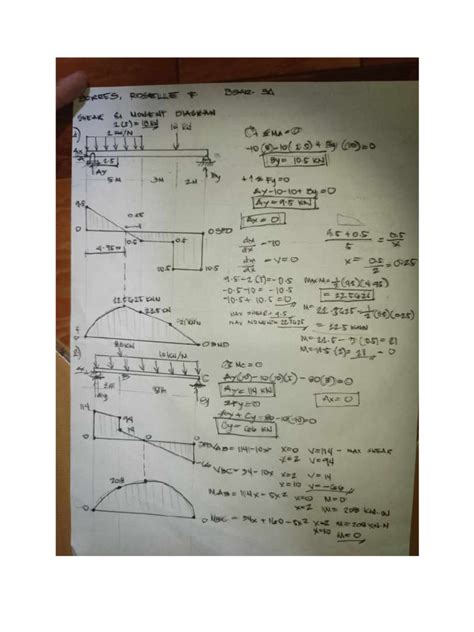 TORRES, ROSELLE F. BSAR-3A
SHEAR & MOMENT DIAGRAM
2(5) = 10 kN
2 kN/N
10 kN
Ax
Ay
2.5
By
5M
3M
2M
ΣMA=0
-10(8)-10(2.5)+By(10)=0
By = 10.5 KN
+↑ΣFy=0
Ay-10-10+By=0
Ay = 9.5 KN
Ax = 0
9.5
0.25
0
0.5
0.5
0 SFD
4.75M
10.5
10.5
= -10
= V=0
9.5-2(5)=-0.5
-0.5-10=-10.5
-10.5+10.5=0
MAX SHEAR = 9.5
MAX MOMENT = 22.5625
9.5+0.5
5
=
0.5
x
x =
0.5
2
=0.25
MAX M = ½(9.5)(4.75)
= 22.5625
M= 22.5625-½(0.5)(0.25)
= 22.5 KNM
M= 22.5-3(0.5)=21
M=10.5(2)=21-0
22.5625 KNM
22.5 KN
21 KNM
0
0 BMD
2)
80KN
10 KN/M
A
B
C
Ay
2M
8M
Cy
ΣMC=0
Ay(10)-10(10)(5)-80(8)=0
Ay = 114 KN
ΣFy=0
Ay+Cy-80-10(10)=0
Cy = 66 KN
Ax = 0
114
94
14
0
0
-66
SFD
VAB=114-10x x=0 V=114 - MAX SHEAR
x=2 V=94
VBC=94-10x x=2 V=14
x=10 V=-66
MAB=114x-5x² x=0 M=0
x=2 M=208 KN.M
208
0
0
MBC=34x+160-5x² x=2 M=208KN.M
x=10 M=0